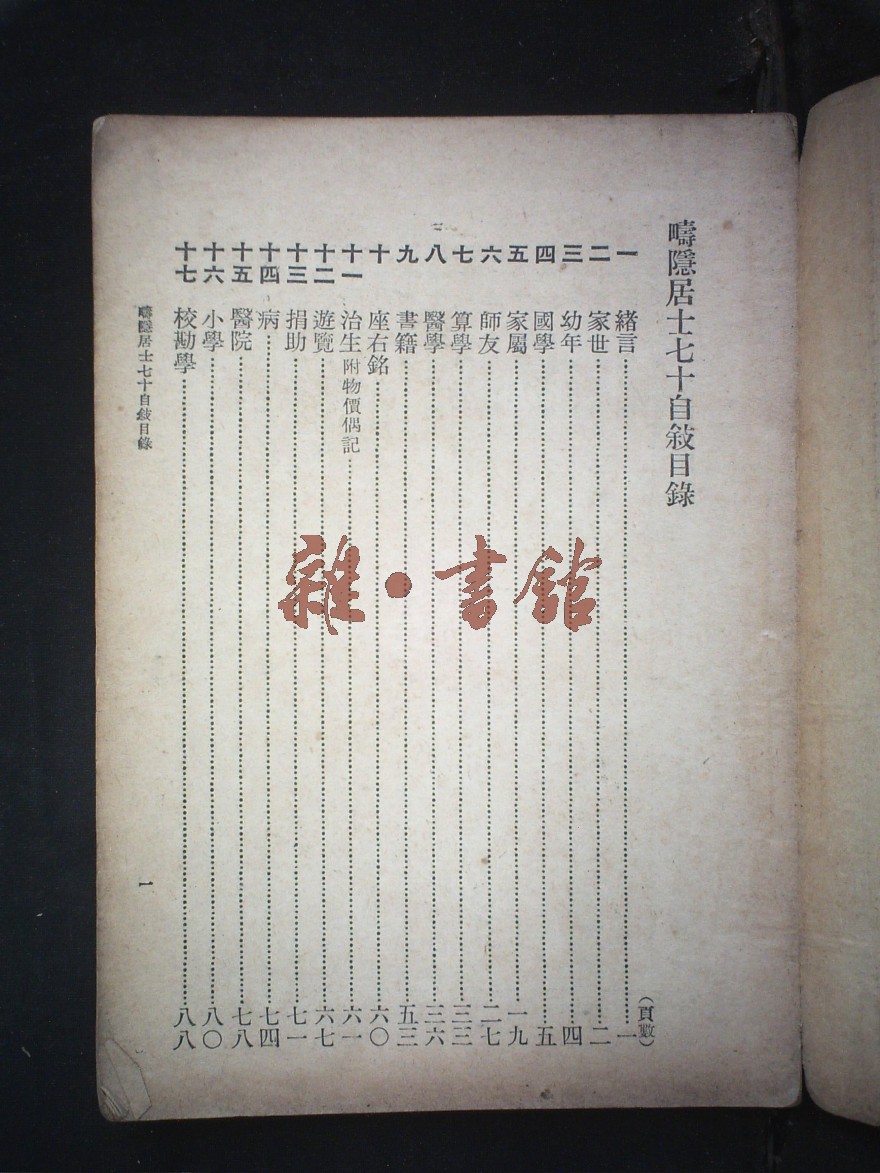 疇隱居士七十自敍目錄
（頁數）
一 緒言 一
二 家世 二
三 幼年 四
四 國學 五
五 家屬 一九
六 師友 二七
七 算學 三三
八 醫學 三六
九 書籍 五三
十 座右銘 六〇
十一 治生 附物價偶記 六一
十二 遊覽 六七
十三 捐助 七一
十四 病 七四
十五 醫院 七八
十六 小學 八〇
十七 校勘學 八八
疇隱居士七十自敍目錄
一
雜·書館